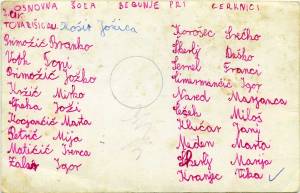 OSNOVNA ŠOLA BEGUNJE PRI CERKNICI
TOVARIŠICA: Košir Jožica
Primožič Branko
Volk Toni
Primožič Jožko
Kržič Mirko
Speha Joži
Kocjančič Marta
Petrič Mija
Matičič Irenca
Zalar Igor
Korošec Srečko
Škerlj Duško
Sernel Franci
Zimermančič Igor
Nared Marjanca
Ležek Miloš
Ključar Janj
Meden Marta
Škerlj Marija
Kranjc Tilka